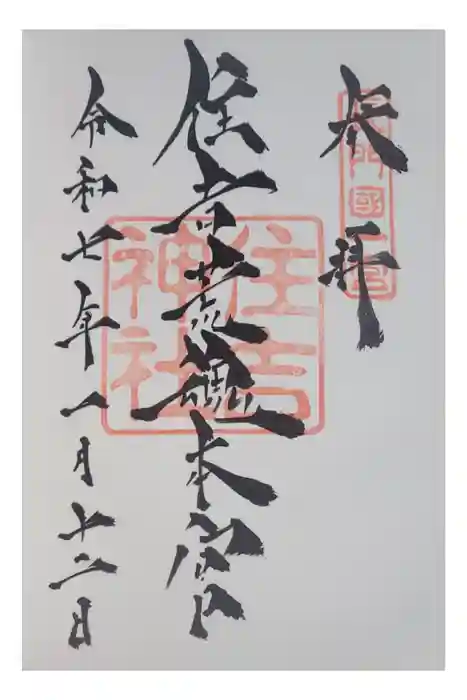 奉拝
長門國一宮
住吉荒魂本宮
住吉神社
令和七年一月十二日